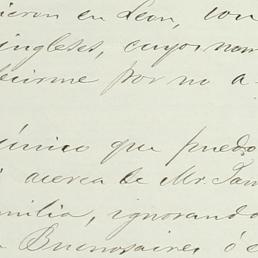 ieron en Leon, con
ingleses, cuyos nom
decirme por no a-
único que puedo
acerca de Mr. Tam
milia, ignorando
Buenosaires, ó e